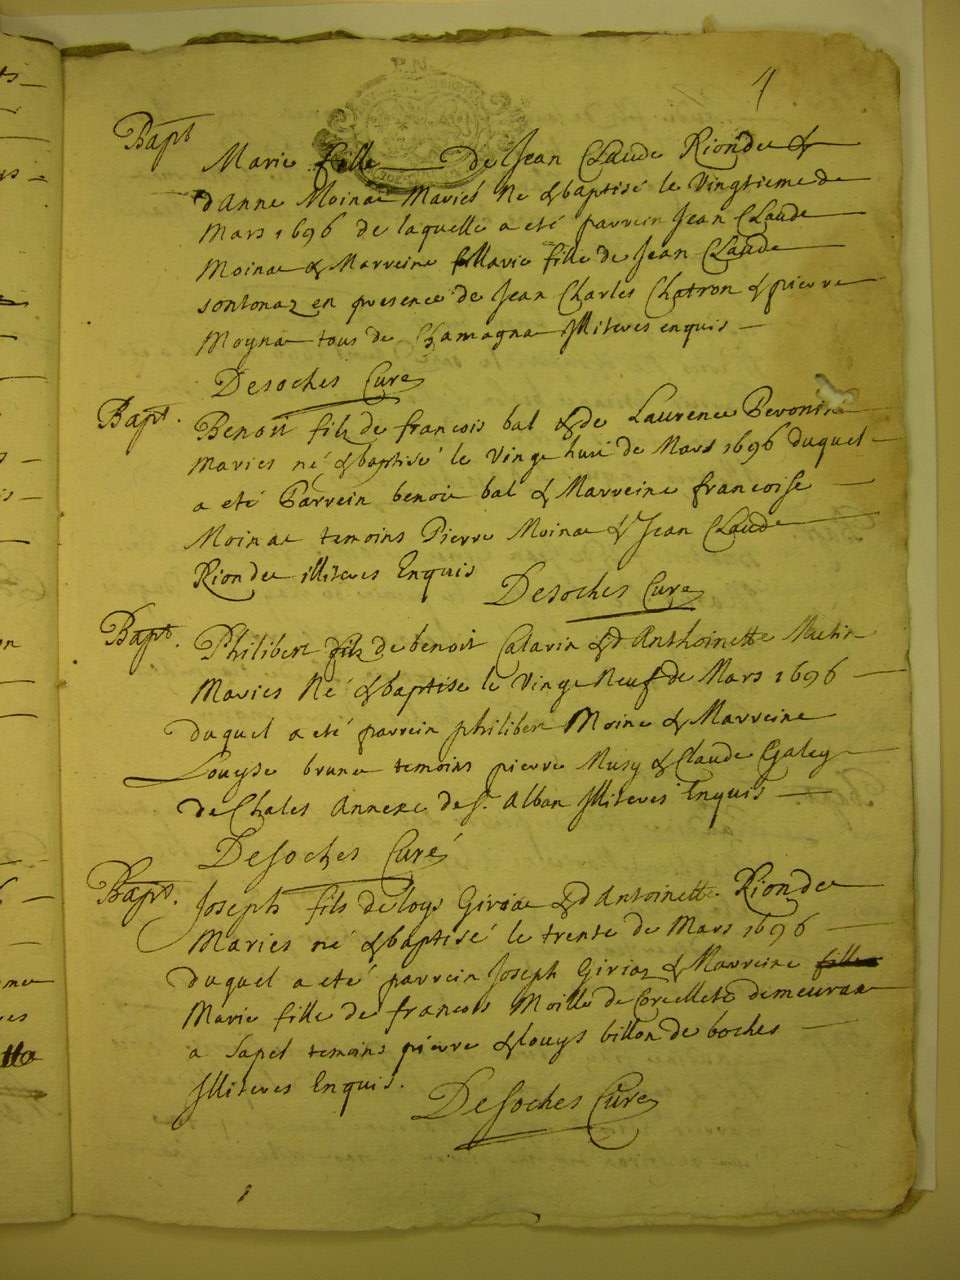 4
Bapt Marie fille de Jean Claude Rionde &
d'anne Moinae Mariés Ne & baptisé le Vingtieme de
Mars 1696 de laquelle a eté parrein Jean Claude
Moinae & Marreine Marie fille de Jean Claude
sontonaz en presence de Jean Charles Chatron & pierre
Moynae tous de Chamagna Illiteres enquis
Desoches Curé
Bapt. Benoit fils de francois bal & de Laurence Peronine
Maries né & baptisé le Vinge huit de Mars 1696 duquel
a eté Parrein benoit bal & Marreine francoise
Moinae temoins Pierre Moinae & Jean Claude
Rionde illiteres Enquis
Desoches Cure
Bapt. Philibert fils de benoit Catarin & d'Anthoinette
Maries Né & baptise le Vinge Neuf de Mars 1696
duquel a eté parrein philibert Moine & Marreine
Louyse brune temoins pierre Musy & Claude
de Chales Annexe de St Alban Illiteres Enquis
Desoches Curé
Bapt. Joseph fils de loys Giriae & d'Antoinette Rionde
Maries né & baptisé le trente de Mars 1696
duquel a eté parrein Joseph Giriaz & Marreine fille
Marie fille de francois Moille de Corcellete demeuran
a Sapel temoins pierre & louys billon de boches
Illiteres Enquis.
Desoches Cure